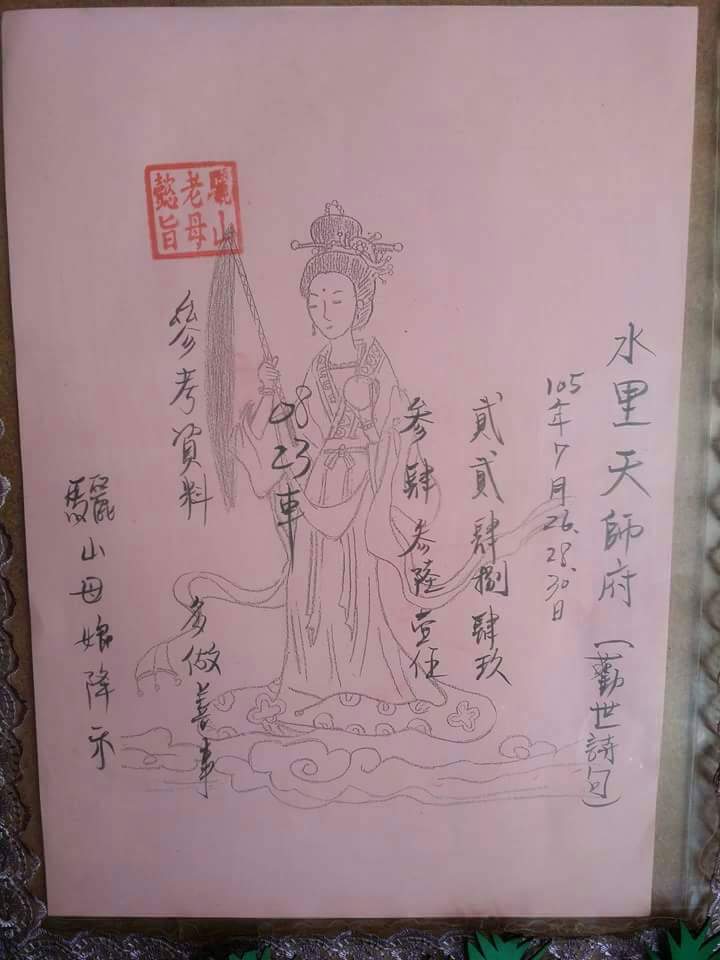 水里天師府(勸世詩句)
105年7月26.28.30日
貳貳肆捌肆玖
參肆參陸壹伍
08 23車
參考資料 多做善事
驪山老母懿旨
驪山母娘降示